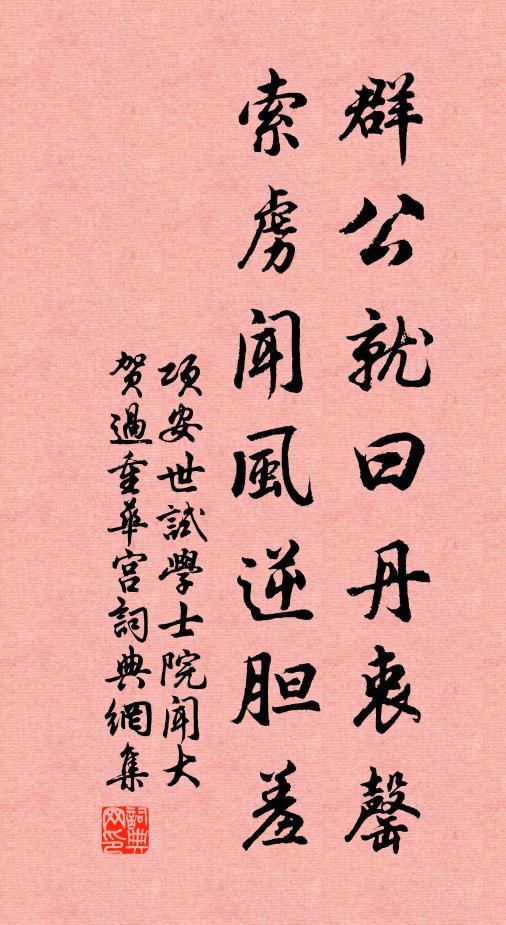 群公就日丹衷罄
索虏闻風逆胆羞
项安世試學士院闻大
贺過重華宫詞典網集
詞典网印